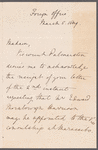 Foreign Office
March 8. 1849
Madam,
Viscount Palmerston
desires me to acknowledge
the receipt of your letter
of the 2nd instant
requesting that Mr. Edward
may be appointed to the
Consulship at